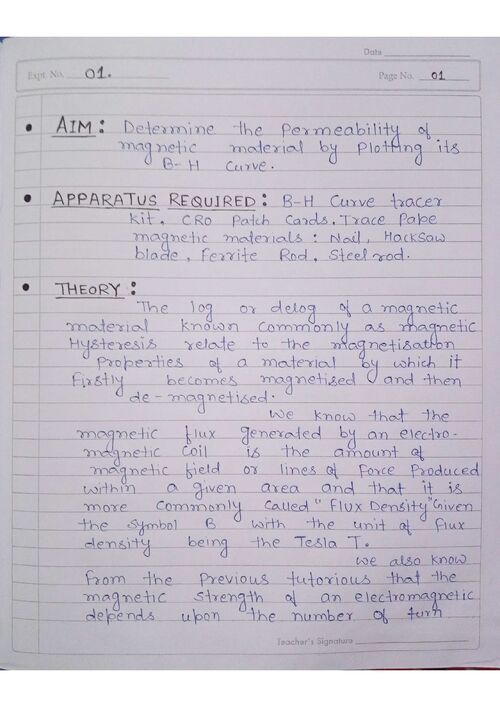 Date
Expt. No. 01.
Page No. 01
• AIM : Determine the Permeability of
magnetic material by Plotting its
B-H Curve.
• APPARATUS REQUIRED : B-H Curve tracer
Kit, CRO Patch Cards, Trace Pape
magnetic materials : Nail, Hacksaw
blade, Ferrite Rod, Steel rod.
• THEORY :
The log or delog of a magnetic
material known commonly as magnetic
Hysteresis relate to the magnetisation
Properties of a material by which it
Firstly becomes magnetised and then
de-magnetised.
We know that the
magnetic flux generated by an electro-
magnetic Coil is the amount of
magnetic field or lines of Force Produced
within a given area and that it is
more Commonly Called "Flux Density" Given
the symbol B with the unit of Flux
density being the Tesla T.
We also know
From the Previous tutorious that the
magnetic strength of an electromagnetic
depends upon the number of turn
Teacher's Signature